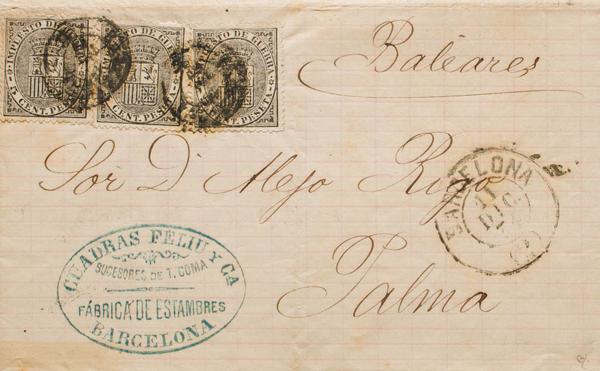 IMPUESTO DE GUERRA
5 CENT. PESETA
IMPUESTO DE GUERRA
5 CENT. PESETA
IMPUESTO DE GUERRA
5 CENT. PESETA
Baleares
Sor D. Alejo Rigo
Palma
BARCELONA
11
DIC
CUADRAS FELIU Y CA
SUCESORES DE T. COMA
FÁBRICA DE ESTAMBRES
BARCELONA